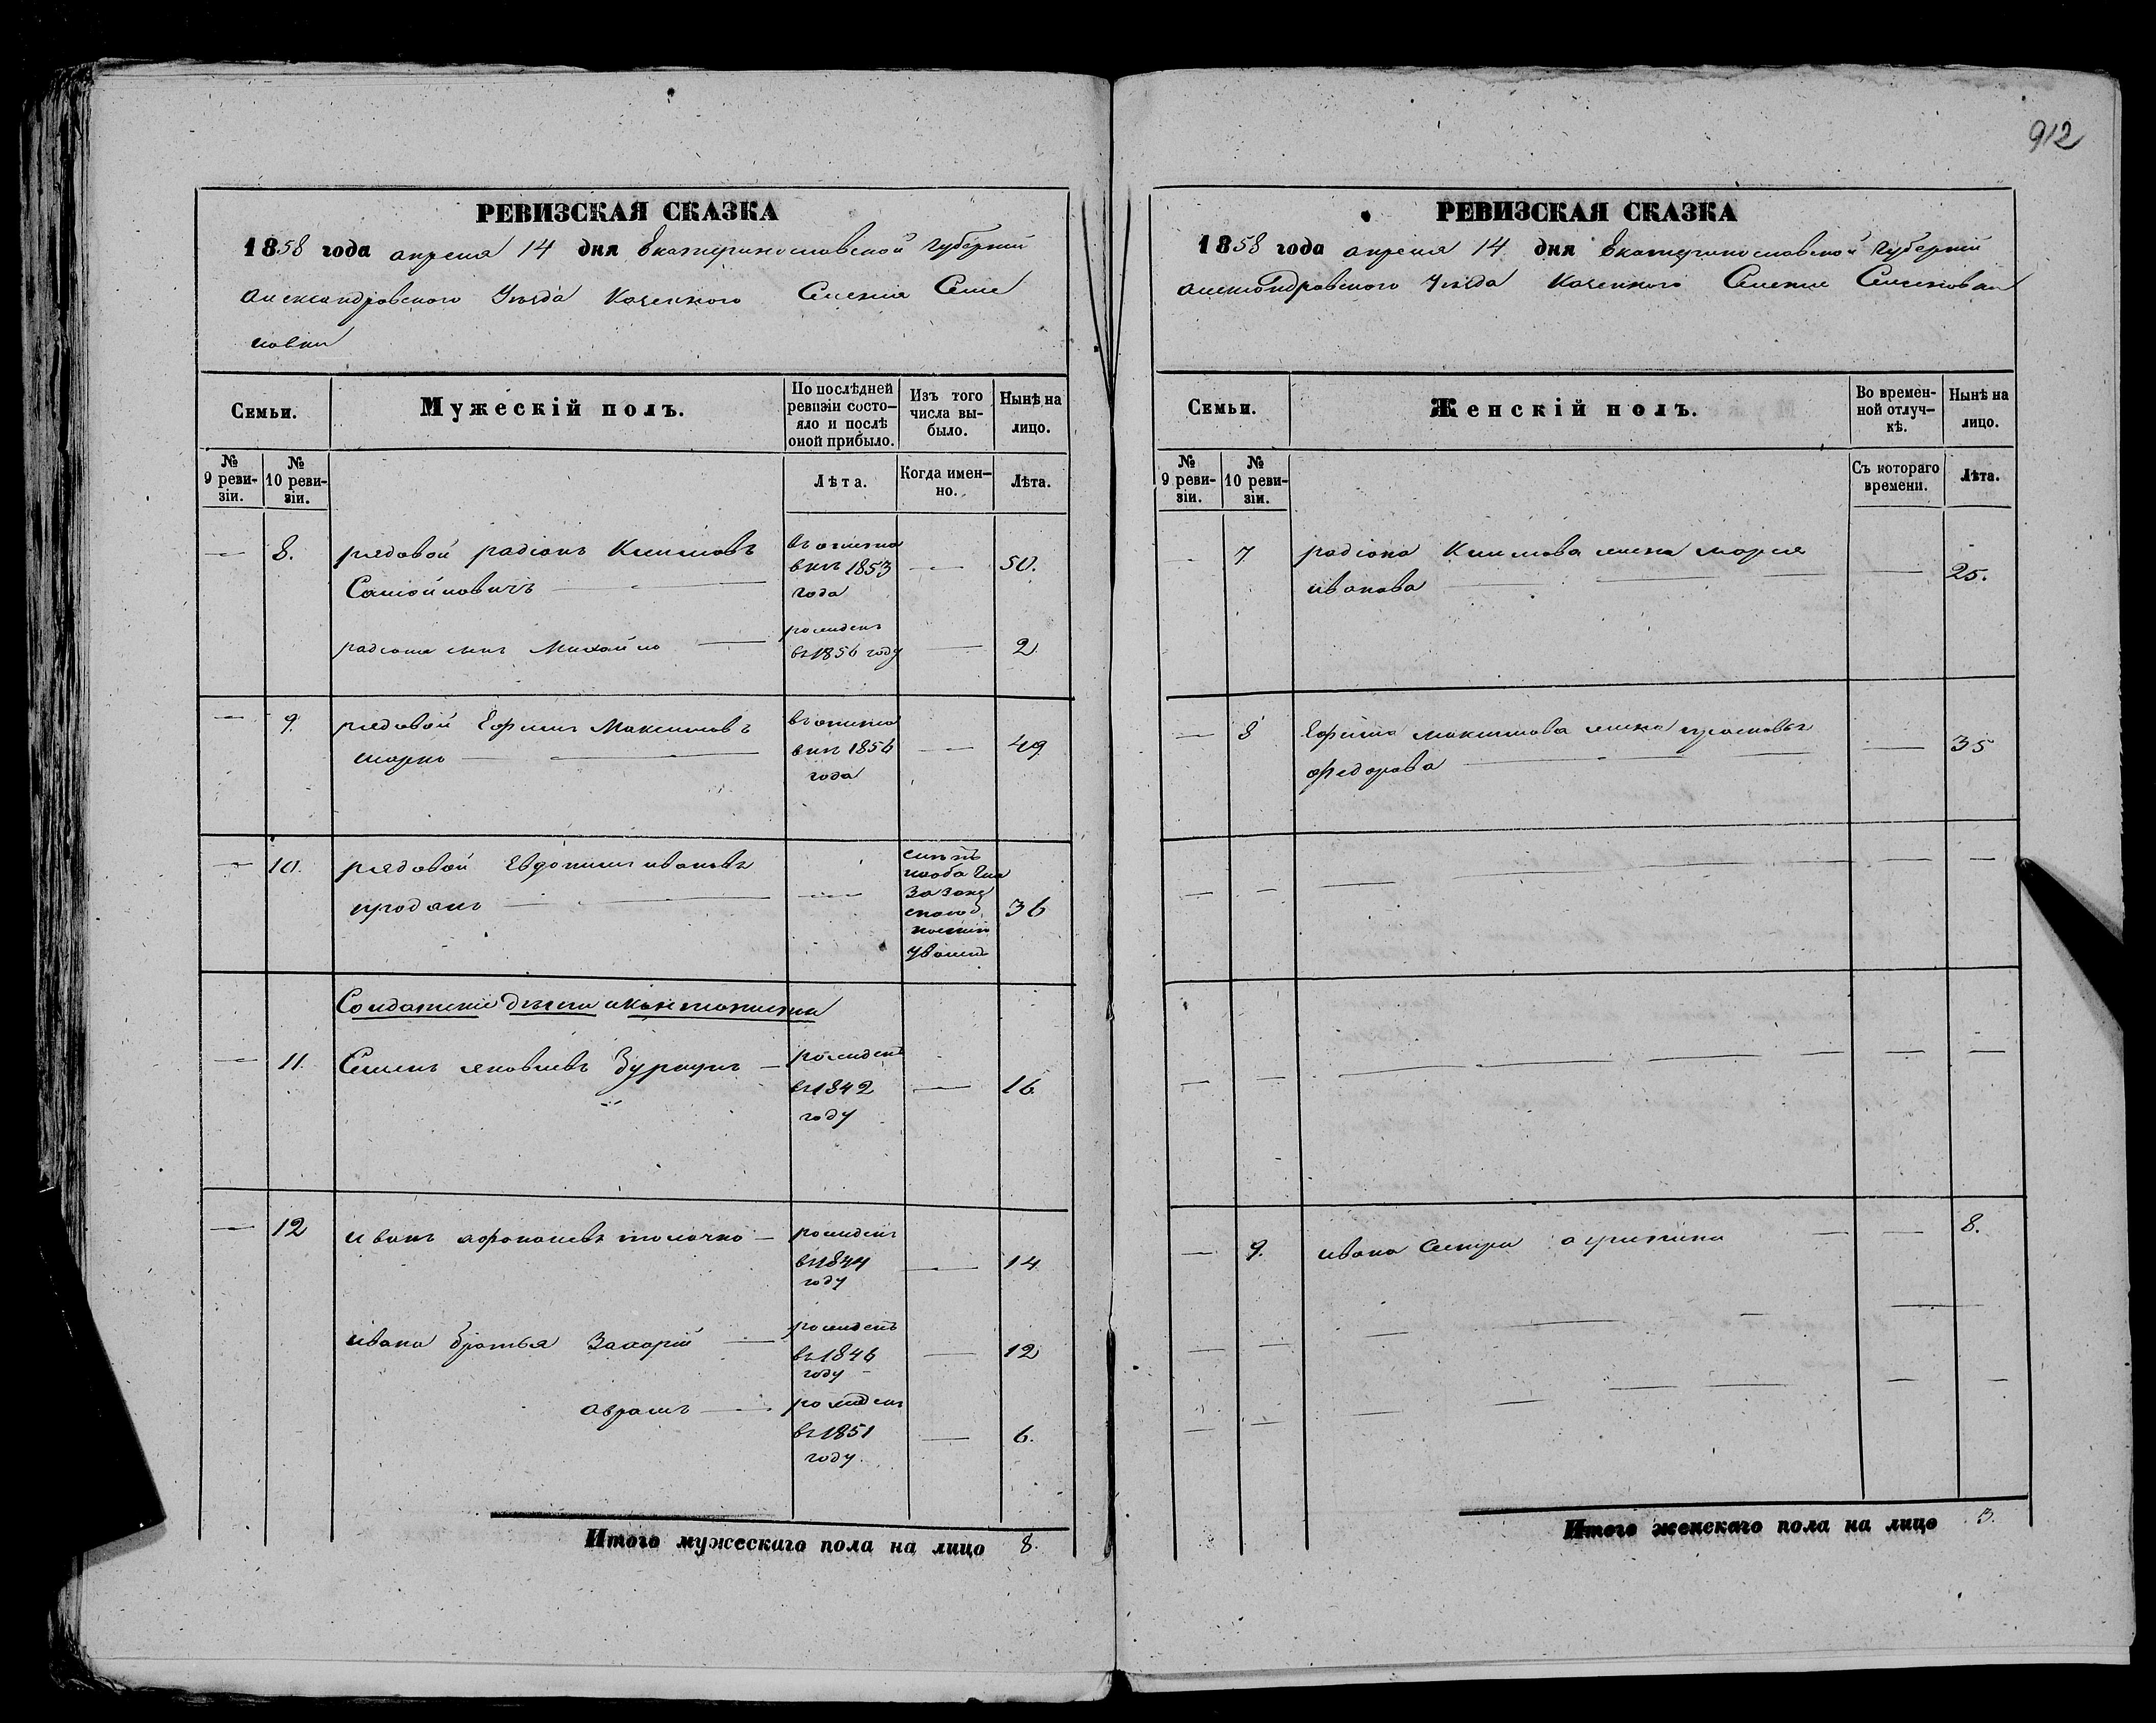 912
РЕВИЗСКАЯ СКАЗКА
1858 года апреля 14 дня Екатеринославской губернiи
Александровского Уезда Казенного Селенiя Семе
новки
Семьи.
Мужескiй полъ.
По послѣдней
ревизiи состо-
яло и послѣ
оной прибыло.
Изъ того
числа вы-
было.
Нынѣ на
лицо.
№
9 реви-
зiи.
№
10 реви-
зiи.
Лѣта.
Когда имен-
но.
Лѣта.
— 8. рядовой радiонъ Климовъ
Самойловичъ
1853
года
— 50.
радiона сынъ Михайло — рожденъ
въ 1856 году — 2
— 9. рядовой Ефимъ Максимовъ
1856
года
— 49
— 10. рядовой Евдокимъ ивановъ
— 36
Солдатскiе дѣти и кантонисты
— 11. Семенъ яковлевъ — рожденъ
въ 1842
году
— 16
— 12 иванъ афонасiевъ толочко — рожденъ
въ 1844
году
— 14
ивана братья Захарiй — рожденъ
въ 1846
году
— 12
аврамъ — рожденъ
въ 1851
году.
— 6.
Итого мужескаго пола на лицо 8.
РЕВИЗСКАЯ СКАЗКА
1858 года апреля 14 дня Екатеринославской губернiи
Александровского Уезда Казенного Селенiя Семеновки
Семьи.
Женскiй полъ.
Во времен-
ной отлуч-
кѣ.
Нынѣ на
лицо.
№
9 реви-
зiи.
№
10 реви-
зiи.
Съ котораго
времени.
Лѣта.
— 7 радiона Климова жена марiя
иванова — 25.
— 8 Ефима максимова жена
федорова — 35
— 9. ивана сестра — 8.
Итого женскаго пола на лицо 3.